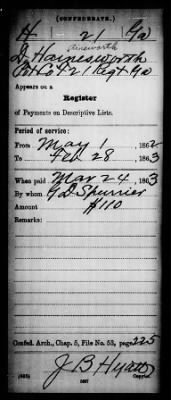 (CONFEDERATE.)
H 21 Ga
Ainsworth
D. Hainesworth
Pvt Co H 21 Regt Ga
Appears on a
Register
of Payments on Descriptive Lists.
Period of service:
From May 1, 1862
To Feb 28, 1863
When paid Mar 24, 1863
By whom G D Spurrier
Amount $110
Remarks:
Confed. Arch., Chap. 5, File No. 53, page 225
J B Hyatt
Copyist.